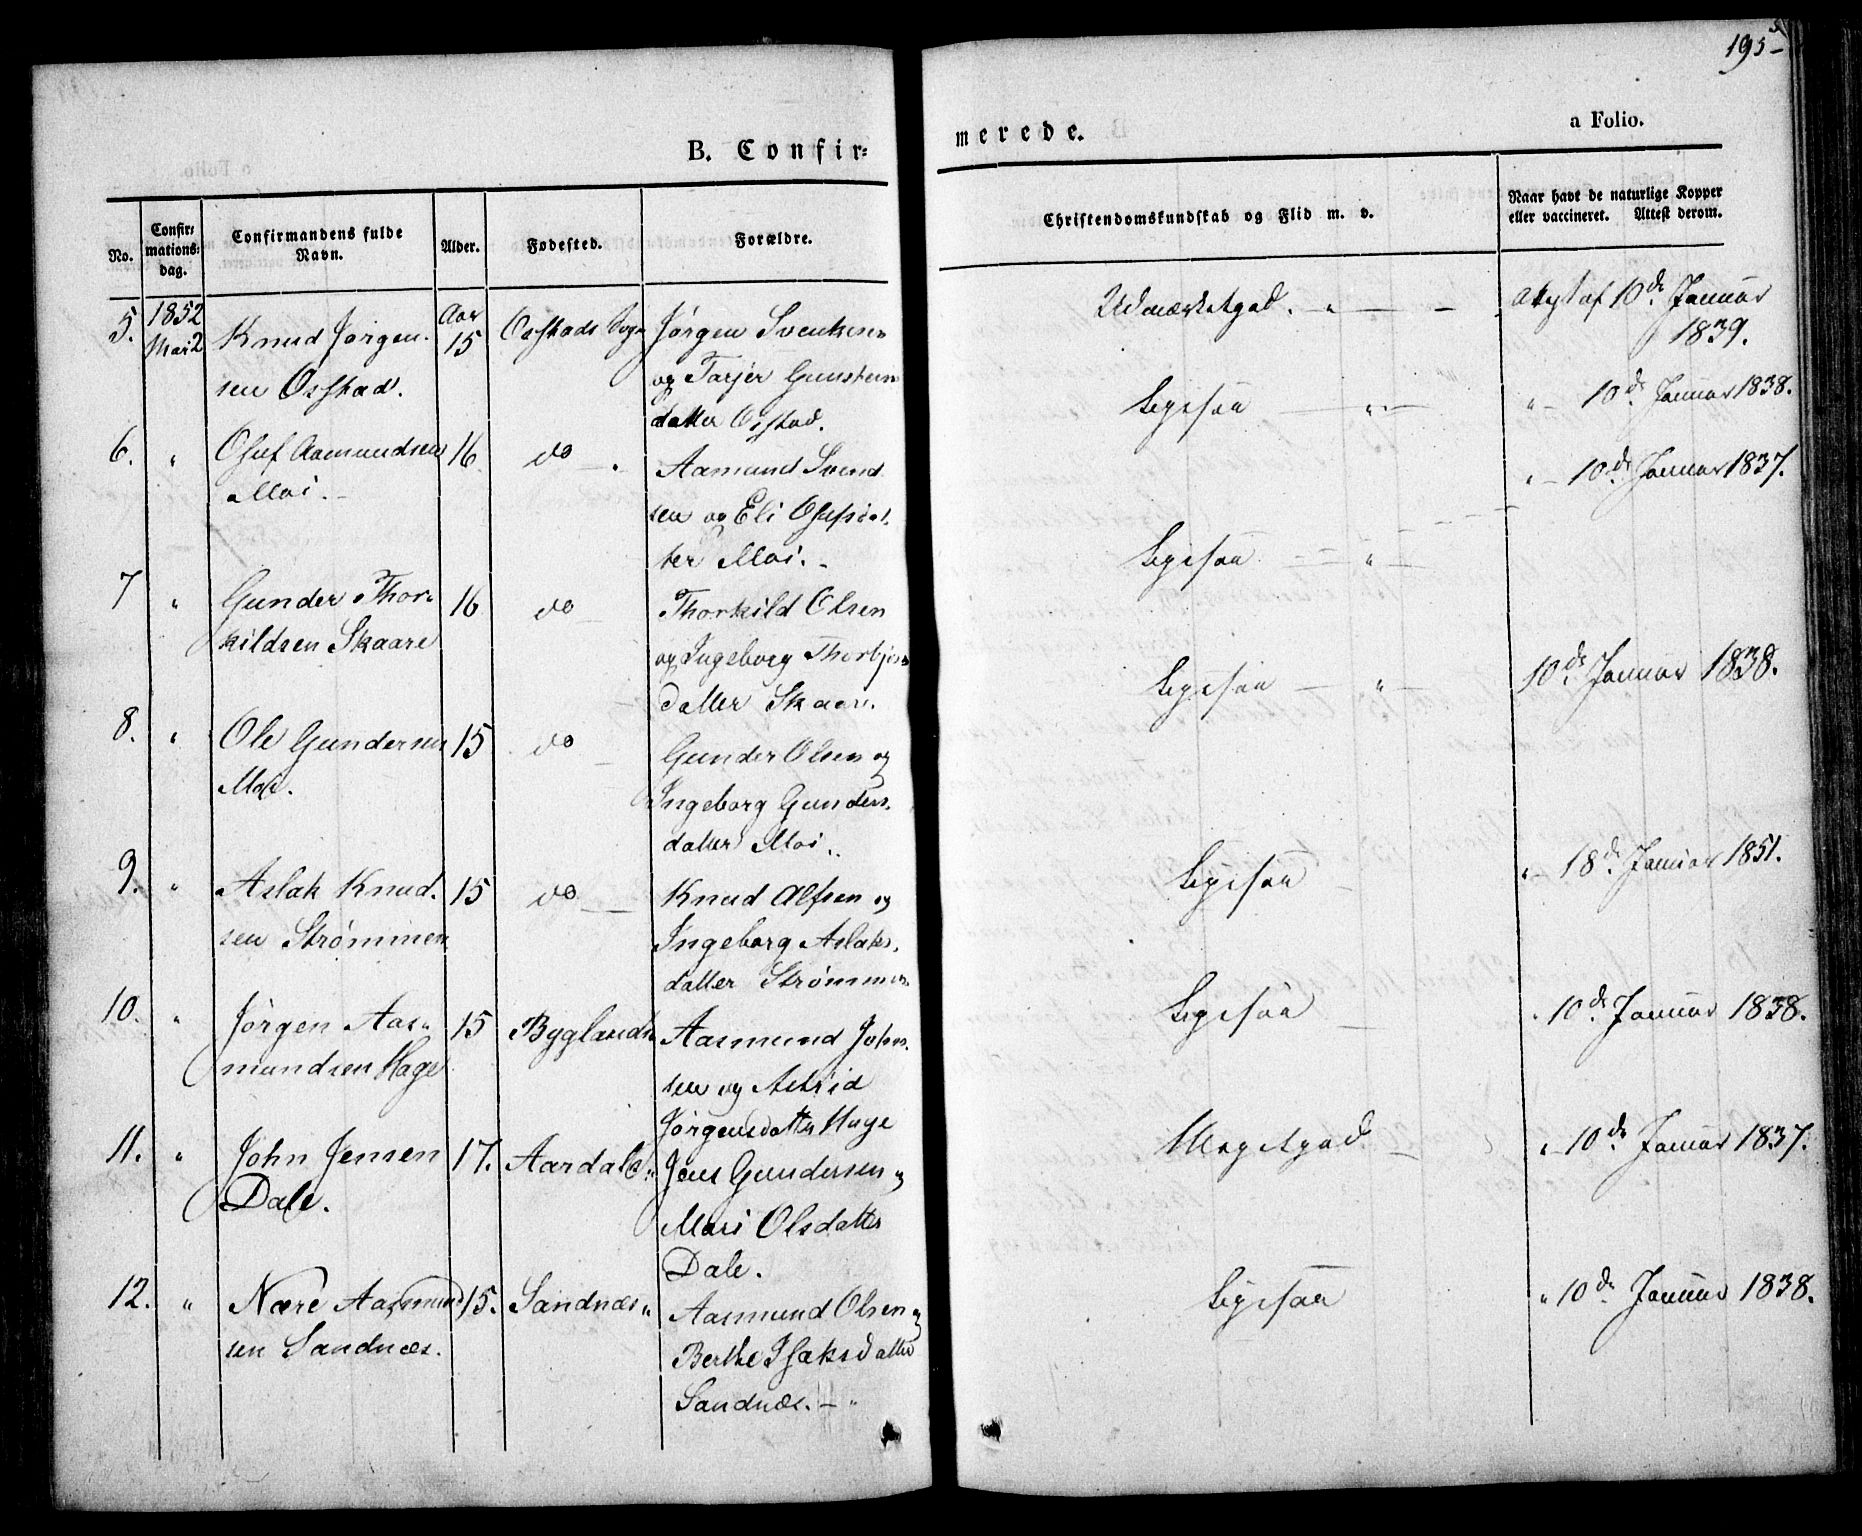 195
B. Confir-
merede.
a Folio.
No.
Confir-
mations-
dag.
Confirmandens fulde
Navn.
Alder.
Fødested.
Forældre.
Christendomskundskab og Flid m. v.
Naar havt de naturlige Kopper
eller vaccineret. Attest derom.
5.
1852
Mai 2
Knud Jørgen-
sen Osstad.
Aar
15
Osstads Sogn
Jørgen Svenken
og Tarjer Gunsteins
datter Osstad.
Udmærketgod. " —
Attest af 10de Januar
1839.
6.
"
Osuf Aamundsen
Moi. -
16
do
Aamund Svend
sen og Eli Osufsdat
ter Moi. -
Ligesaa — " —
" — 10de Januar 1838.
7
"
Gunder Thor-
kildsen Skaare
16
do
Thorkild Olsen
og Ingeborg Thorbjørns
datter Skaare.
Ligesaa — " —
" — 10de Januar 1837.
8.
"
Ole Gundersen
Moi.
15
do
Gunder Olsen og
Ingeborg Gunders.
datter Moi.
Ligesaa — " —
10de Januar 1838.
9.
"
Aslak Knud-
sen Strømmen
15
do
Knud Alfsen og
Ingeborg Aslaks-
datter Strømmen
Ligesaa —
" — 18de Januar 1851.
10.
"
Jørgen Aas-
mundsen Hage
15
Byglands
Aasmund Johns-
sen og Astrid
Jørgensdatter Hage
Ligesaa —
" 10de Januar 1838.
11.
"
John Jensen
Dale.
17.
Aardals "
Jens Gundersen og
Mari Olsdatter
Dale.
Megetgod —
" — 10de Januar 1837.
12.
"
Nære Aasmund
sen Sandnæs.
15.
Sandnæs "
Aasmund Olsen og
Berthe Isaksdatter
Sandnæs. — "
Ligesaa
" 10de Januar 1838.